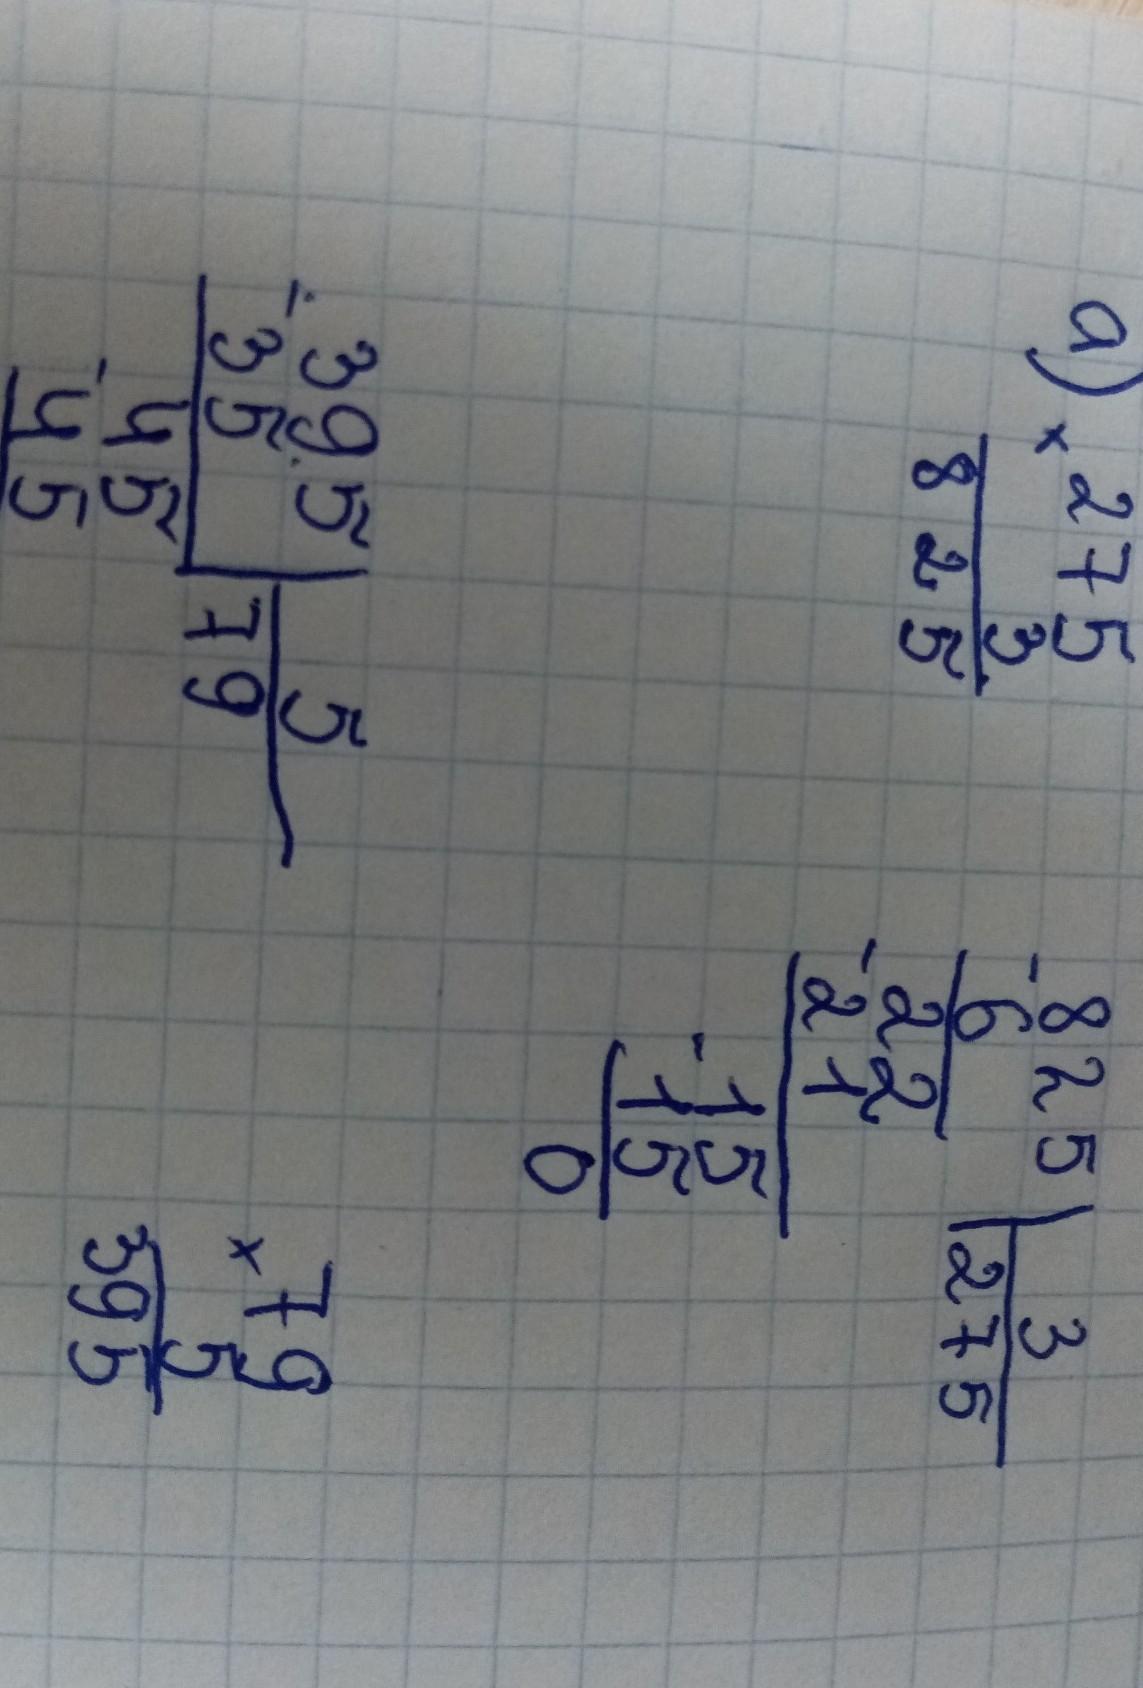 a) × 275
3
825
- 825 | 3
6 275
- 22
21
- 15
15
0
- 395 | 5
35 79
- 45
45
× 79
5
395